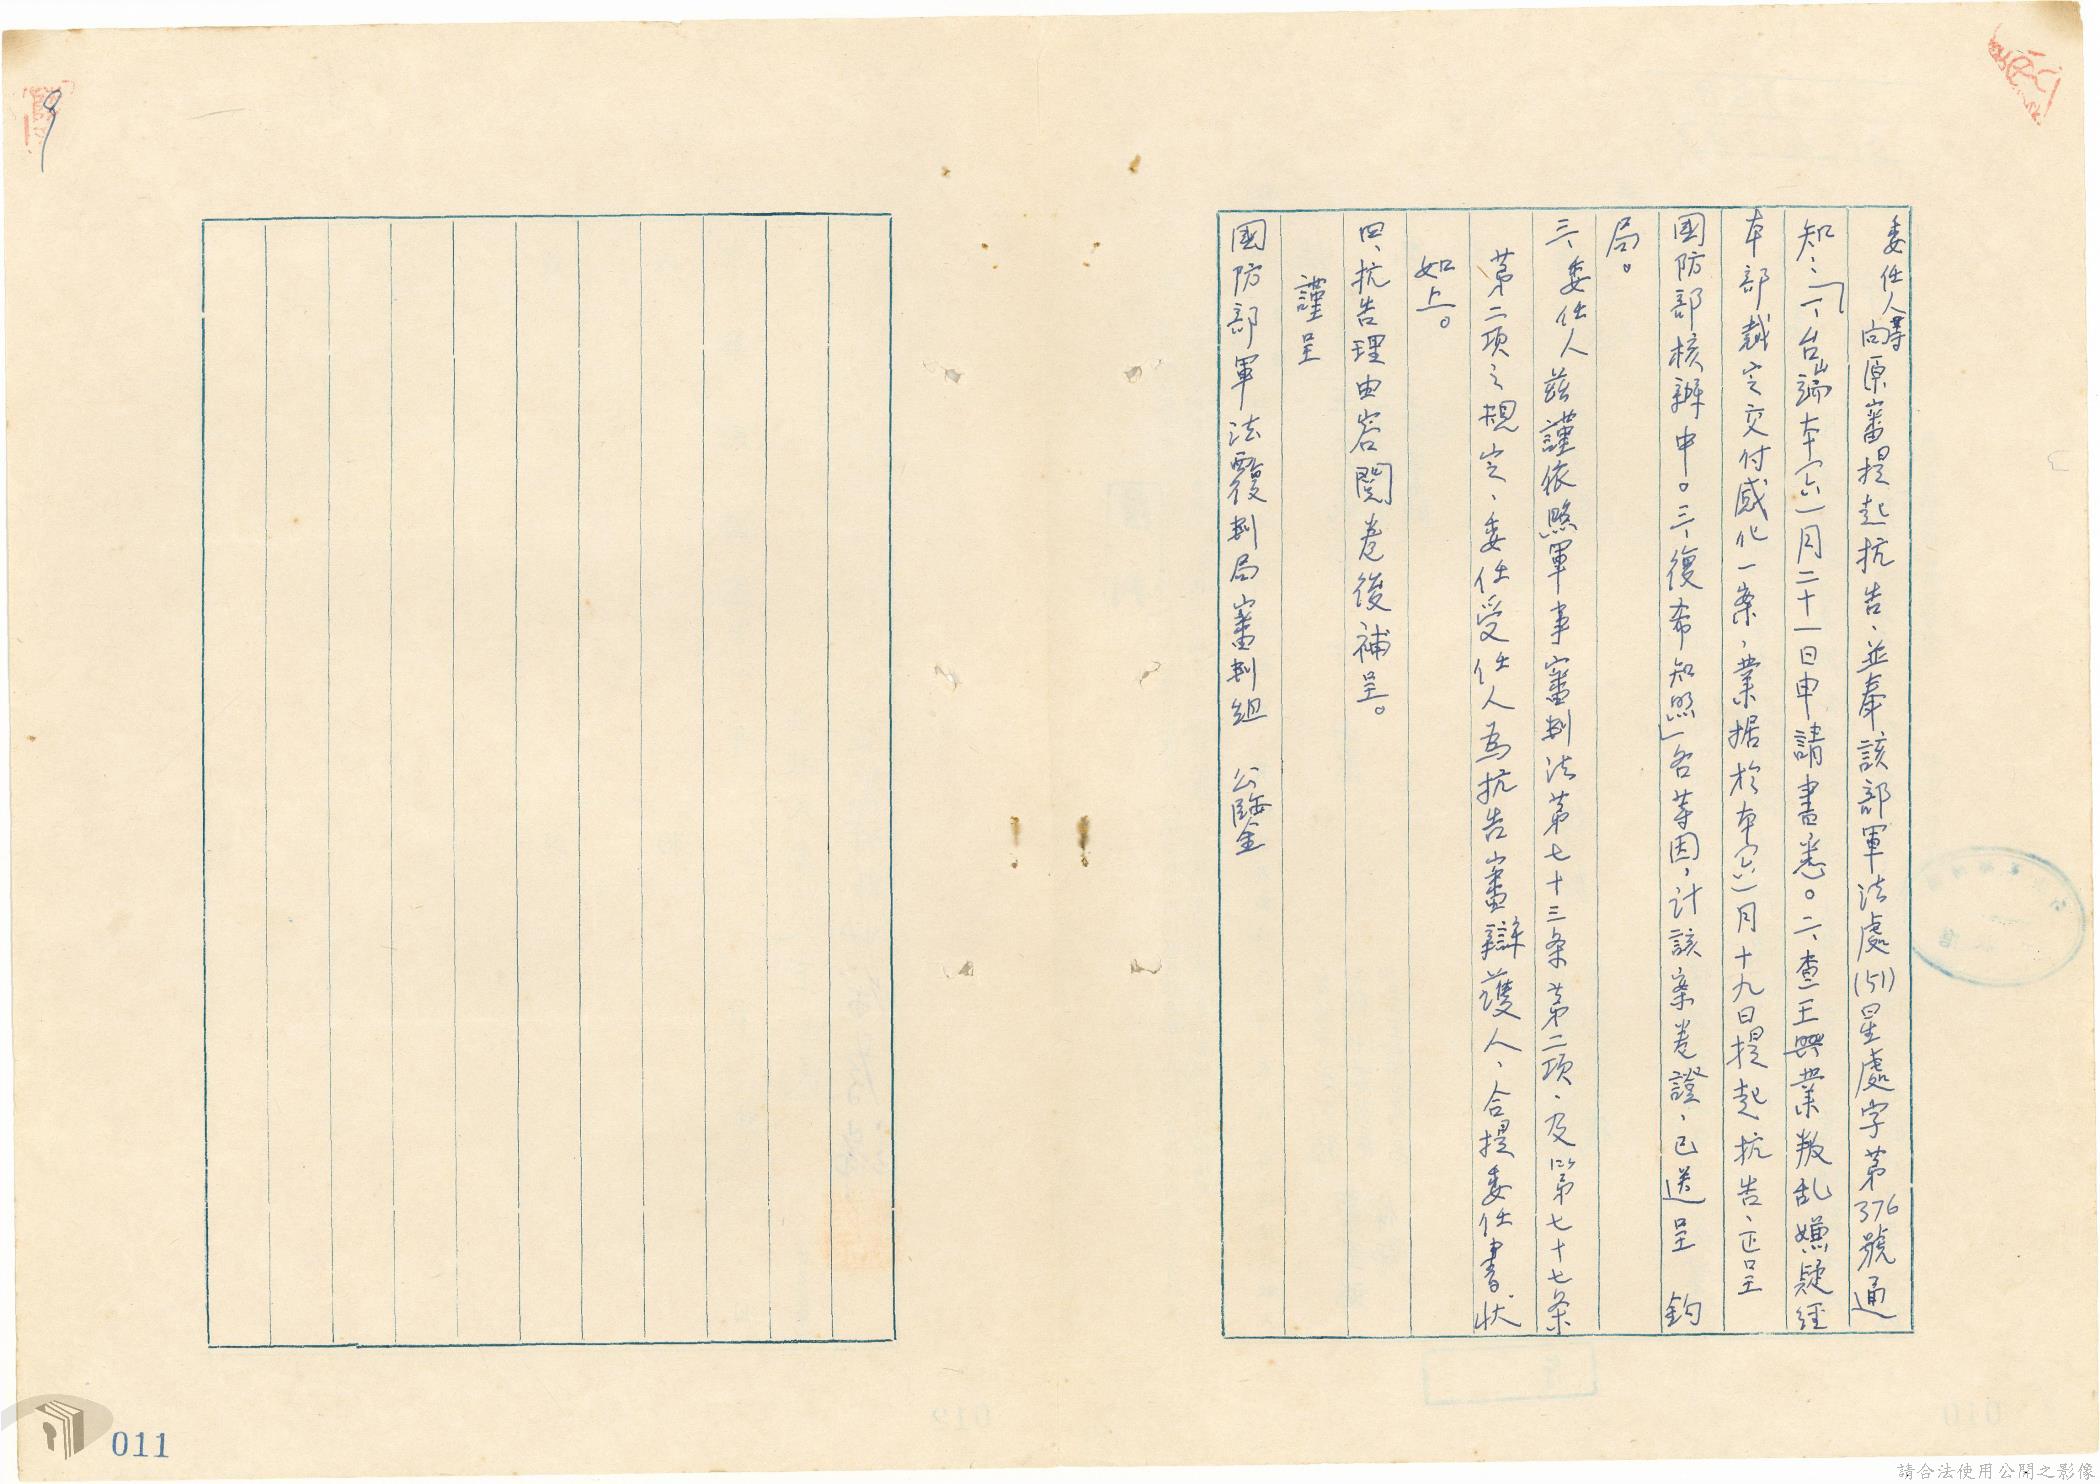 委任人等向原審提起抗告、並奉該部軍法處(51)星處字第376號通
知:「一、台端本(六)月二十一日申請書悉。二、查王興業叛乱嫌疑經
本部裁定交付感化一案,業据於本(六)月十九日提起抗告、正呈
國防部核辦中。三、復希知照」各等因,計該案卷證、已送呈 鈞
局。
三、委任人茲謹依照軍事審判法第七十三条第二項、及以第七十七条
第二項之規定、委任受任人為抗告審辯護人、合提委任書狀
如上。
四、抗告理由容閱卷後補呈。
謹呈
國防部軍法覆判局審判組 公鑒
9
011
請合法使用公開之影像